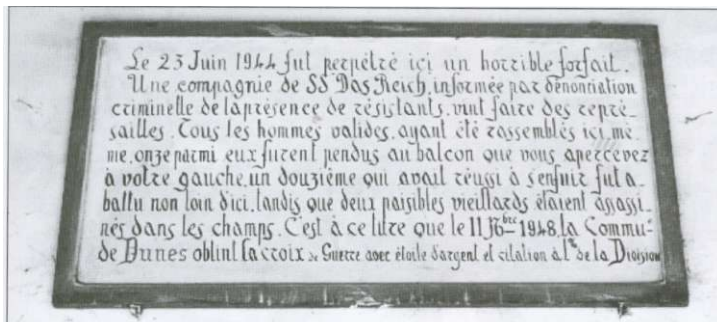 Le 23 Juin 1944 fut perpétré ici un horrible forfait.
Une compagnie de SS Das Reich, informée par dénonciation
criminelle de la présence de résistants, vint faire des repré-
sailles. Tous les hommes valides, ayant été rassemblés ici, mê-
me, onze parmi eux furent pendus au balcon que vous apercevez
à votre gauche, un douzième qui avait réussi à s'enfuir fut a-
battu non loin d'ici, tandis que deux paisibles vieillards étaient assassi-
nés dans les champs. C'est à ce titre que le 11 9bre 1948, la Commu-
de Dunes obtint la croix de Guerre avec étoile d'argent et citation à l' de la Division